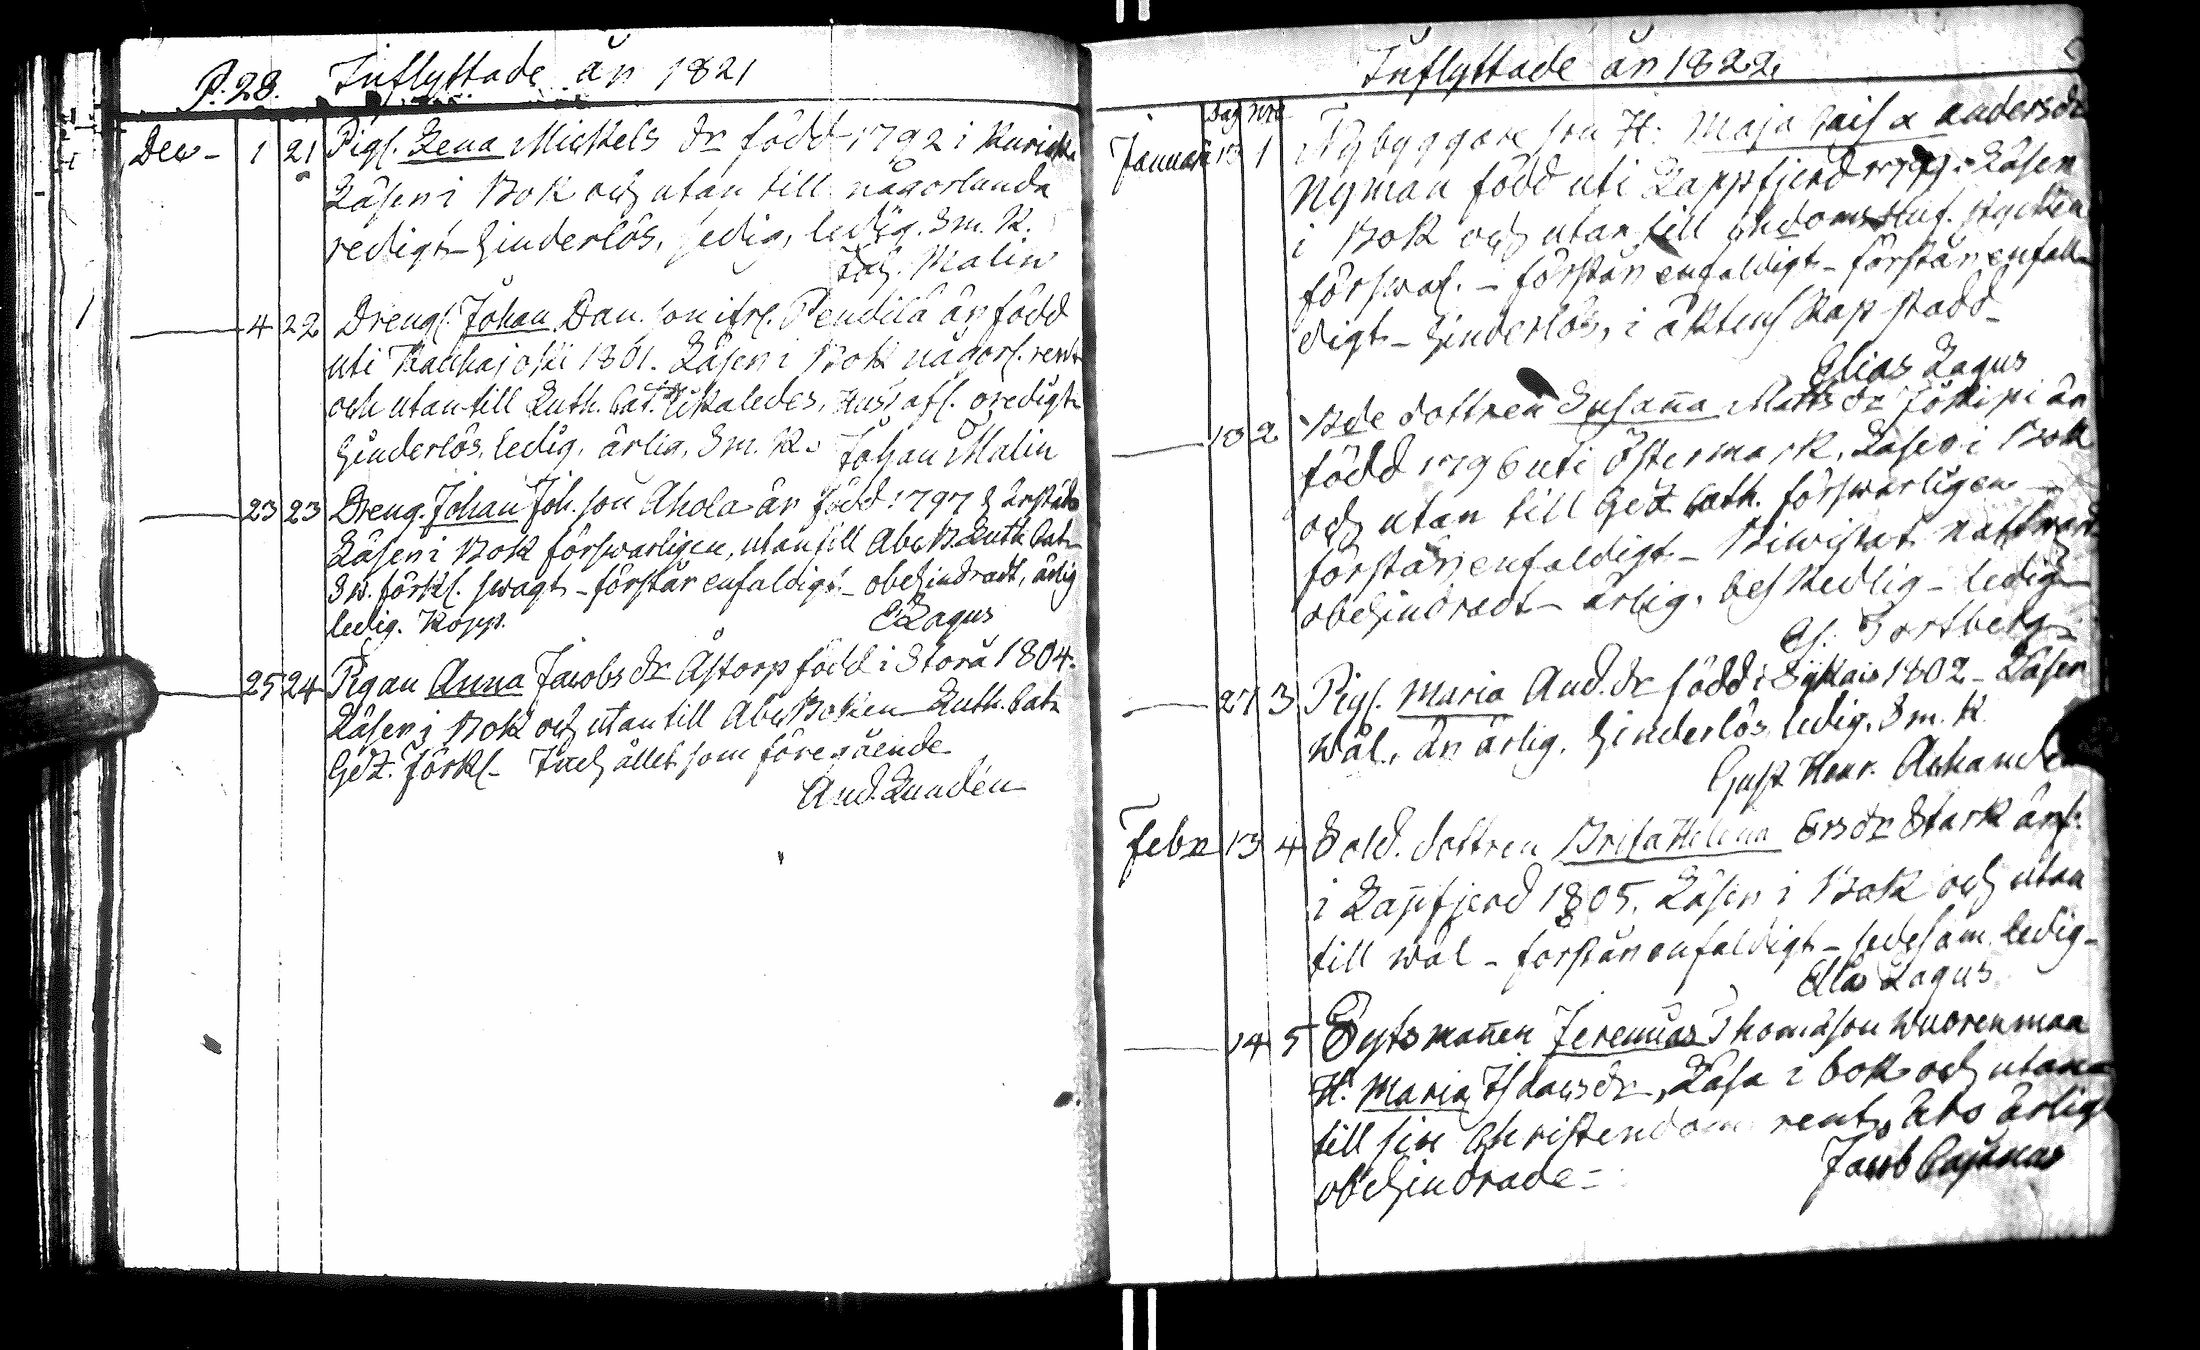 P. 28. Inflyttade år 1821
Dec 1 21 Pigs. Lena Mickels dr född 1792 i
Läser i Bok och utan till någorlunda
redigt - hinderlös, ledig. Sm. K.
Joh. Malin
4 22 Drengs. Johan Dan. son ifrs. Pendilä är född
uti Kauhajoki 1801. Läser i Bok någors. rent
och utan till Luth. Cat. likaledes, Hustafl. oredigt
hinderlös, ledig, ärlig, Sm. K. Johan Malin
23 23 Dreng. Johan Joh. son Ahola är född 1797
Läser i Bok förswarligen, utan till Abc B. Luth. Cat.
Sw. förkl. swagt - förstår enfaldigt - obehindradt, ärlig
ledig. Kopp. E Lagus
25 24 Pigan Anna Jacobs dr Åstorp född i Storå 1804.
Läser i Bok och utan till Abc Boken Luth. Cat.
Gez. förkl. och allet som föregående
And. Lundén
Inflyttade år 1822.
Dag Nro
Januari 13 1 Nybyggare son H: Maja Caisa Andersdr
Nyman född uti Lappfjerd Läser
i Bok och utan till
förswarl. - förstår enfaldigt - förstår enfal-
digt - hinderlös, i äktenskap stadd
Elias Lagus
13 2 Bde dottren Susanna Matts dr är
född 1796 uti Östermark, Läser i Bok
och utan till Gez Cath. förswarligen
förstår enfaldigt - Biwistat nattward
obehindradt - ärlig, beskedlig - ledig
27 3 Pigs. Maria And. dr född i 1802 - Läser
wäl, är ärlig, hinderlös, ledig. Sm. K.
Gust Henr.
Febr 13 4 Sold. dottren Brita Helena Ersdr Stark är f.
i Lappfjerd 1805. Läser i Bok och utan
till wäl - förstår enfaldigt - sedesam, ledig -
Elias Lagus
14 5 Bytsmannen Jeremias Thomasson Wuorenmaa
H. Maria Isaacsdr, Läsa i bok och utan
till sin Christendom rent, äro ärlig
obehindrade - Jacob Cajanus